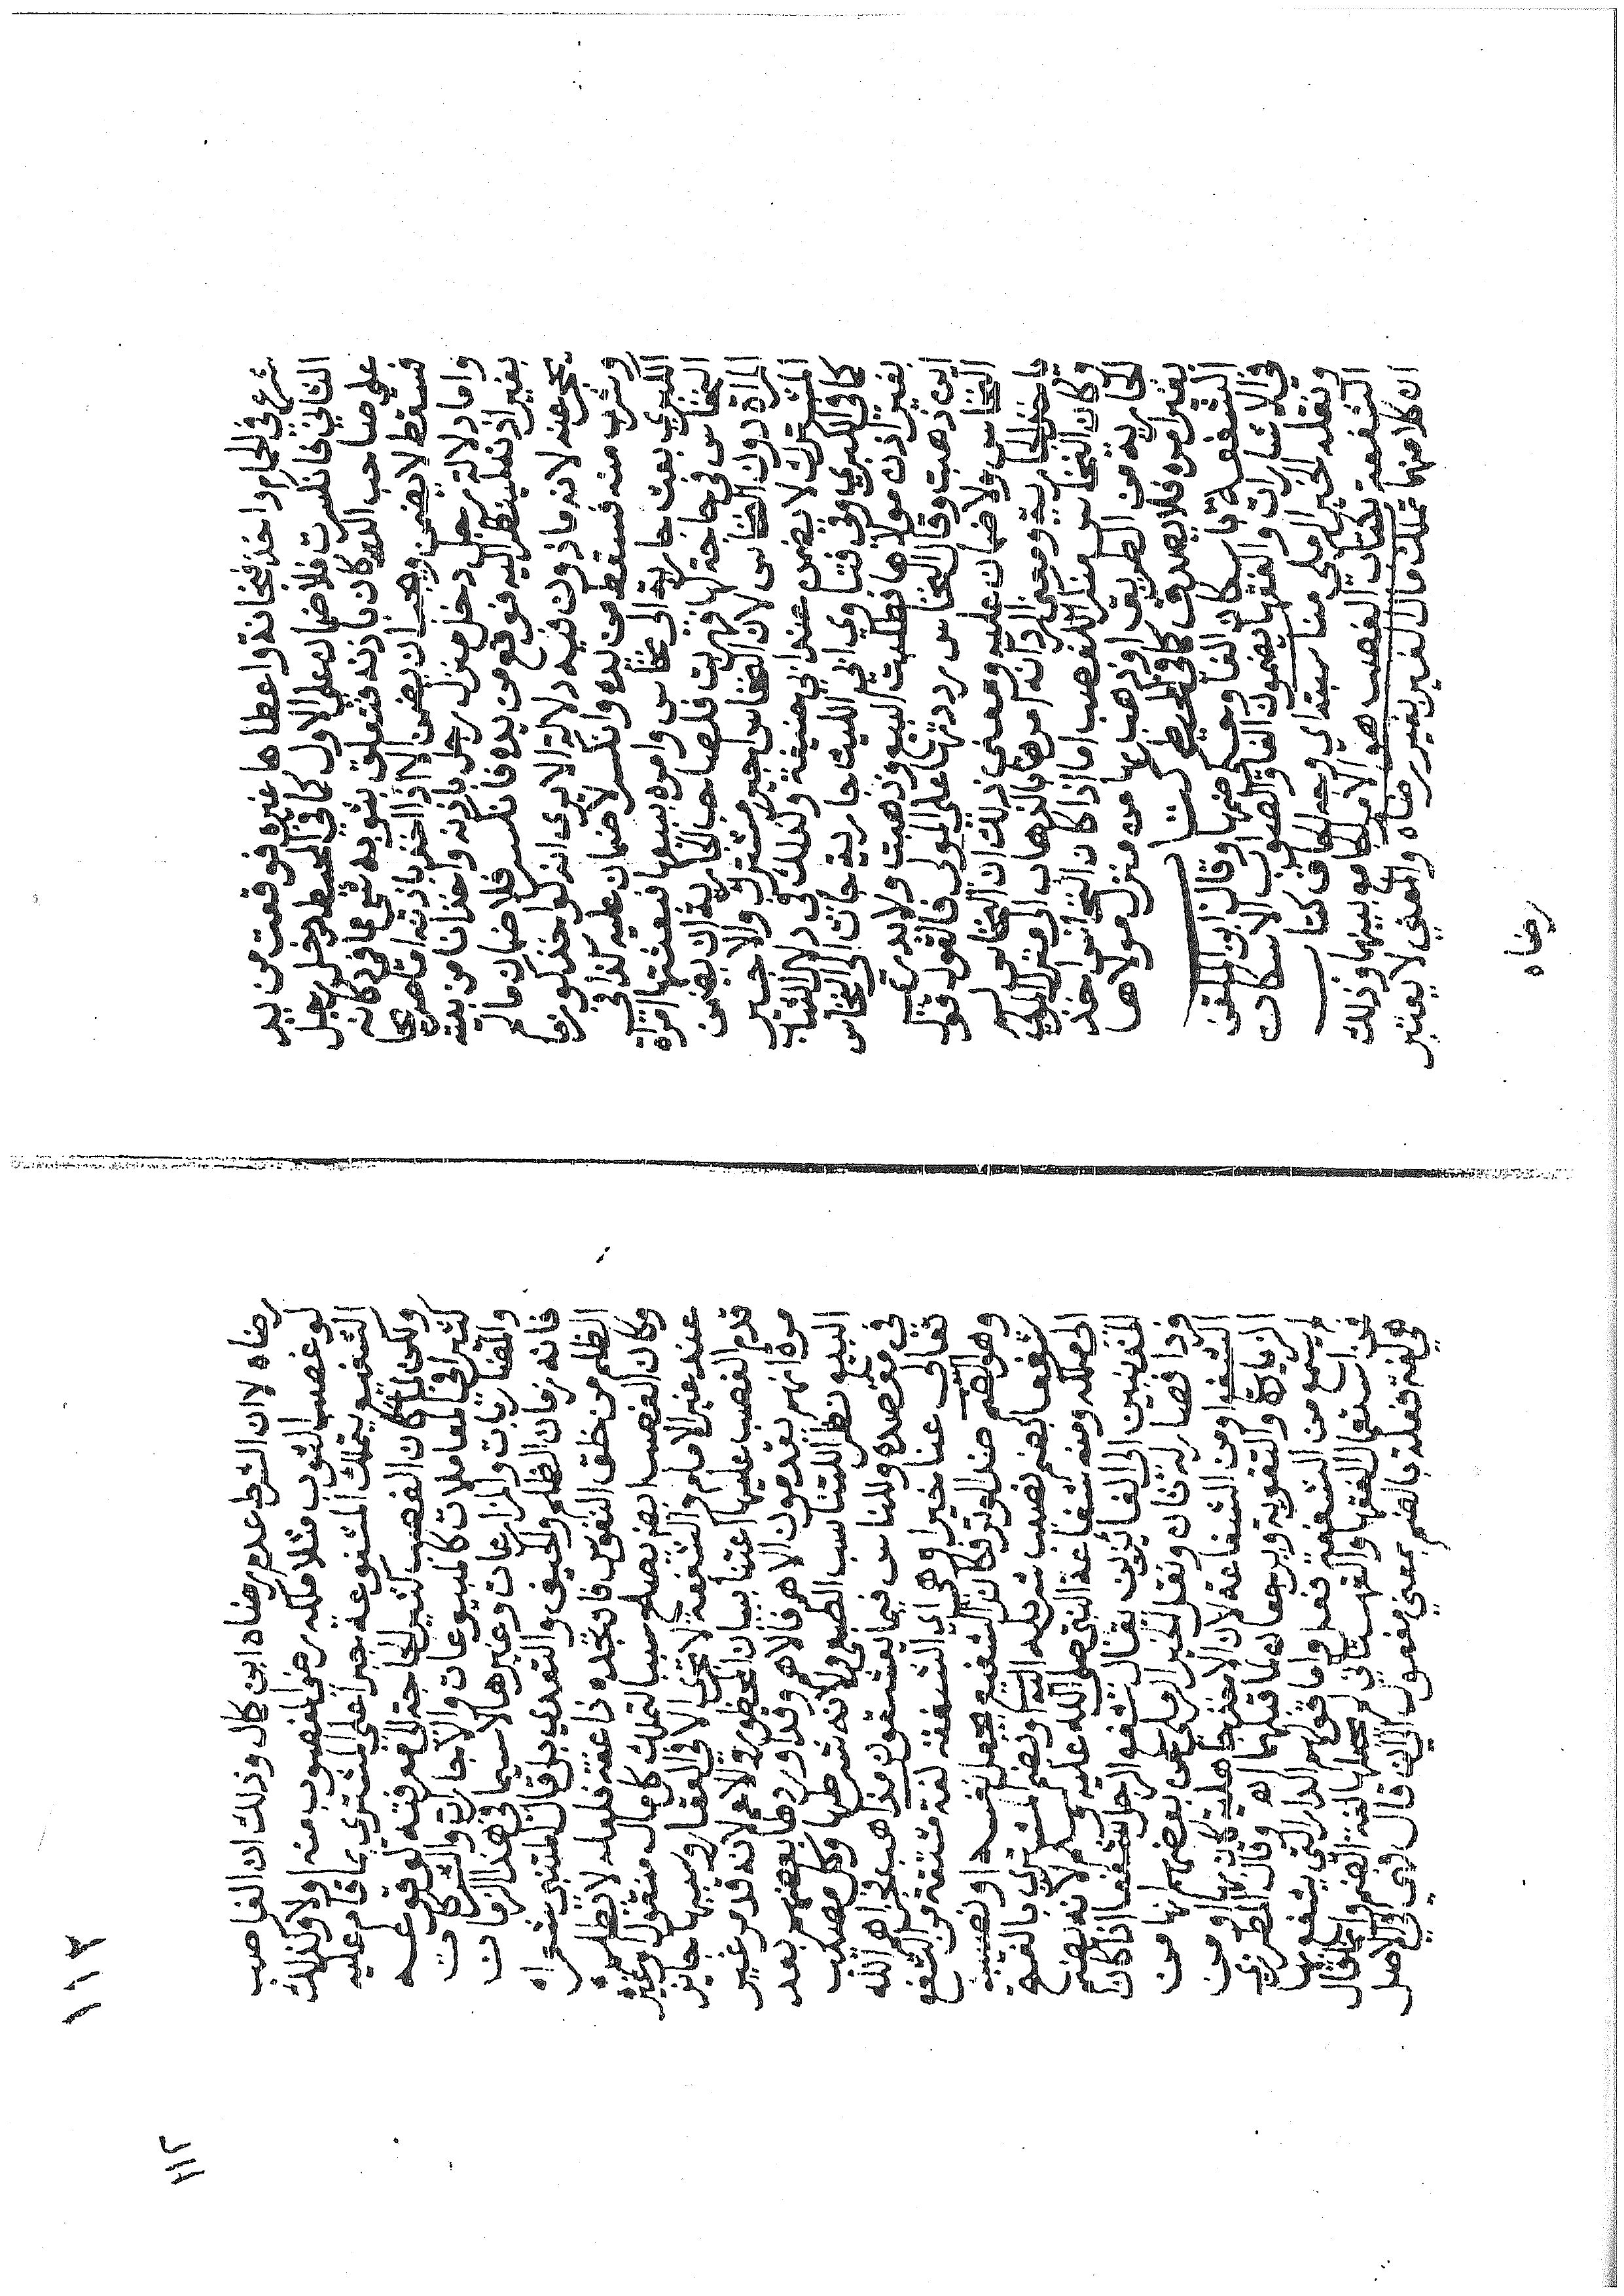 شرع في الحمام واخذ فنجانة واعطاها غيره فوقعت من يد
الثاني فانكسرت فلا ضمان على الاول كما في المحيط دخل رجل
على صاحب الدكان باذنه فتعلق بثوبه شي مما في دكانه
فسقط لا يضمن ويجب ان يضمن الا اذا اخذ باذنه
واما دلالة رجل دخل منزل رجل باذنه واخذ انا من بيته
بغير اذنه لينظر اليه فوقع من يده فانكسر فلا ضمان ما لم
يحجر عنه لانه ماذون فيه دلالة الا يرى انه لو اخذ كوز ما
وشرب منه فسقط من يده وانكسر لا ضمان عليه كذا في
الكبرى بعث جارية الى نخاس وامره ببيعها فبعثتها امراة
النخاس في حاجة لها فهربت فلصاحب الجارية ان يضمن
المراة دون النخاس لان النخاس اجير مشترك والاجير
المشترك لا يضمن عند ابي حنيفة وكذلك في دلال الثياب
كما في الكبرى وفي فتاوى ابي الليث جارية جات الى النخاس
بغير اذن مولاها فطلبت البيع وذهبت ولا يدري
اين ذهبت وقال النخاس رددتها على المولى فالقول قول
النخاس ولا ضمان عليه ومعنى ذلك ان النخاس لم
ياخذ الجارية ومعنى الرد انه امرها بالذهاب الى منزل المولى
وكان النخاس منكرا للغصب اما اذا كان النخاس اخذ
الجارية من الطريق او ذهب بها من منزل مولاها
بغير امره فلا يصدق كما في المحيط كتاب
الشفعة باسكان الفا وحكي ضمها وقال ابن الملقن
في الاشارات والفقها يضمون الفا والصواب الاسكان
ونقله الخير الرملي مناسبتداي وجه الحاق كتاب
الشفعة بكتاب الغصب هو الامر الجامع بينهما وذلك
ان كلا منهما تملك مال الغير بغير رضاه والمعنى لا يعتبر
رضاه
رضاه لا ان الشرط عدم رضاه ابن كمال وذلك ان الغاصب
لو غصب الثوب مثلا ملكه رضى المغصوب منه او لا وكذلك
الشفيع يتملك المشفوعة جبرا على المشتري بما قام عليه
ولكن لما كان الغصب كثير الحاجة الى معرفته لوقوعه
كثيرا في المعاملات كالبيوعات والاجارات والشركات
والمضاربات والمزارعات وغيرها لا سيما في هذا الزمان
فانه زمان الظلم والحيف والتعدي بل قال المتنبي شعراه
الظلم من خلق النفوس فان تجد ذا عفة فلعله لا يظلم
وكان الغصب ايضا يصلح سببا لتملك كل مال منقول وغيره
عند غير الامام والشفعة لا تجري الا في العقار وسببها جايز
قدم الغصب عليها اعتنا ببيان المحظور ولانه قدم غير
مرة انهم يقدمون الاهم فالاهم وقد اوردها بعضهم بعد
البيوع نظرا للتناسب الطبعي ولانه شرطها وكل مصيب
في مقصده وللناس فيما يعشقون مذاهب فجزاهم الله
تعالى عنا خيرا وهي اي الشفعة لغة مشتقة من الشفع
وهو الضم ضد الوتر فكان الشفيع يجعل نفسه او نصيبه
شفعا بضم نصيب شريكه اليه او بضم المشترى بالفتح
الى ملكه ومنه شفاعة النبي صلى الله عليه وسلم لانه يضم
المذنبين الى الفائزين يقال شفع الرجل شفعا اذا كان
وذا فصار له ثان ونقل الخير الرملي عن بعضهم انها من
الشفع او من الشفاعة لان الاخذ في جاهلية كان بها او من
الزيادة والتقوية ويرجعان لما قبلهما اهـ وقال المطرزي
لم يسمع من الشفعة فعل واما قولهم الدار التي يشفع بها
فمن استعمال الفقها والقهستاني لعلها لغة الضم والمقال
هي لغة فعلة بالضم بمعنى مفعول الى ان قال فهي في الاصل
١١٢
٢١٢